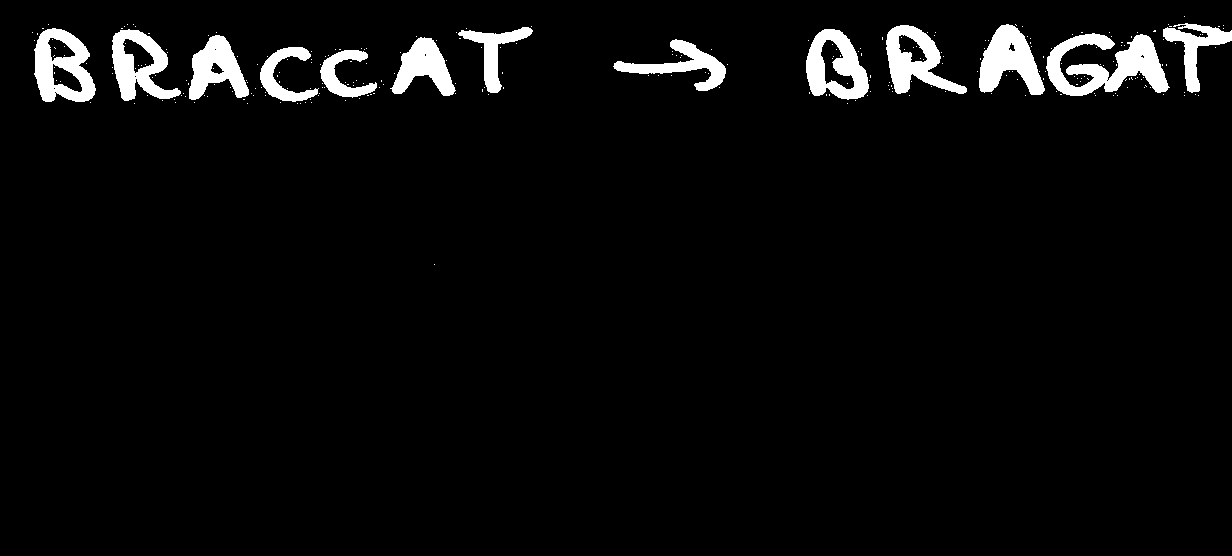 BRACCAT → BRAGAT